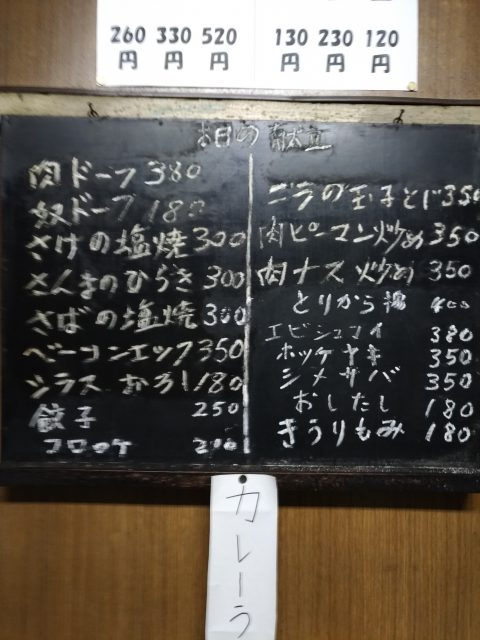 260 330 520
円 円 円
130 230 120
円 円 円
本日の献立
肉ドーフ 380
奴ドーフ 180
さけの塩焼 300
さんまのひらき 300
さばの塩焼 300
ベーコンエッグ 350
シラスおろし 180
餃子 250
コロッケ 200
ニラの玉子とじ 350
肉ピーマン炒め 350
肉ナス炒め 350
とりから揚 400
エビシュウマイ 380
ホッケヤキ 350
シメサバ 350
おしたし 180
きうりもみ 180
カレーラ